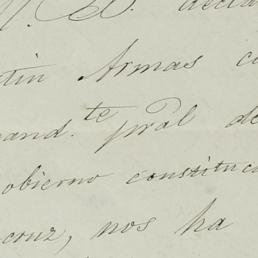 decla
tin Armas c
and.te pral de
obierno constituc
cruz, nos ha